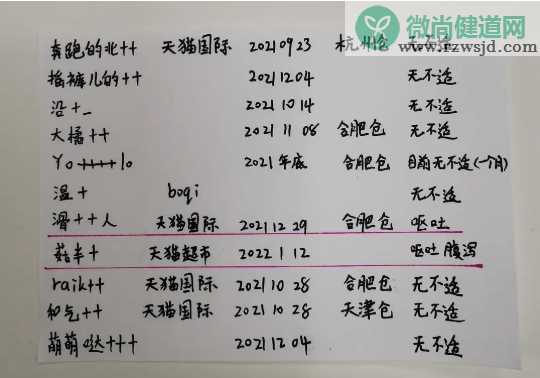 微尚健道网
www.rzwsjd.com
奔跑的北++ 天猫国际 20210923 杭州仓 无不适
捂裤儿的++ 20211204 无不适
沿+_ 20211014 无不适
大橘++ 20211108 合肥仓 无不适
Yo+++++lo 2021年底 合肥仓 目前无不适(一个月)
温+ boqi 无不适
滑++人 天猫国际 20211229 合肥仓 呕吐
菇半+ 天猫超市 2022112 呕吐腹泻
raik++ 天猫国际 20211028 合肥仓 无不适
和气++ 天猫国际 20211028 天津仓 无不适
萌萌哒+++ 20211204 无不适